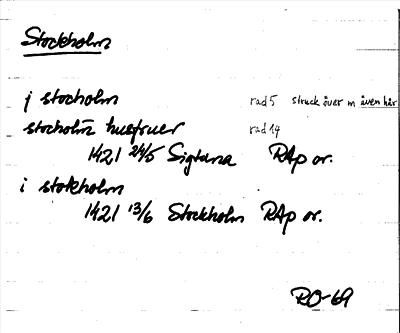 Stockholm
j stocholm rad 5 struck över m även här
stocholm husfruer rad 14
1421 24/5 Sigtuna RAp or.
i stokholm
1421 13/6 Stockholm RAp or.
RO-69